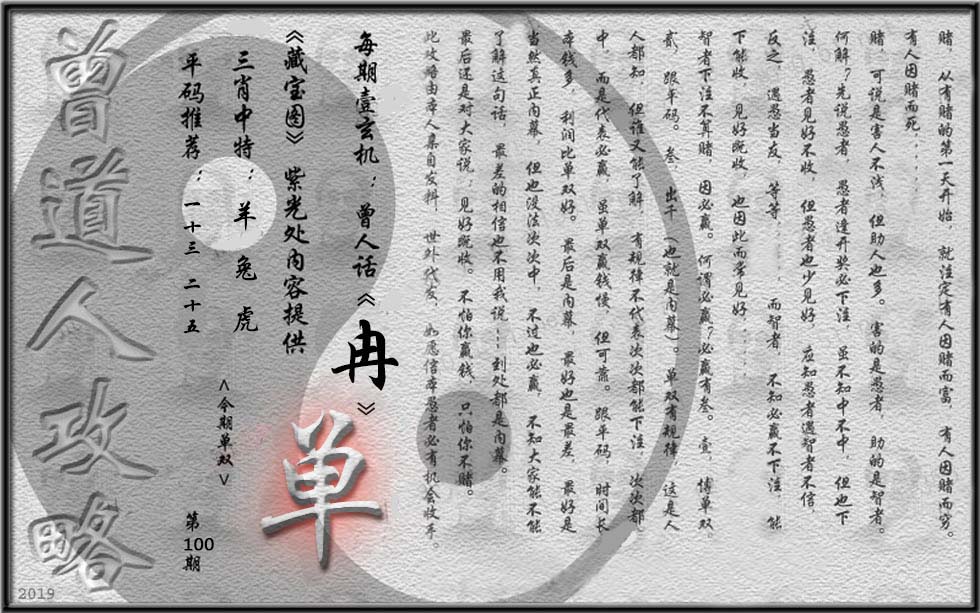 赌,从有赌的第一天开始,就注定有人因赌而富,有人因赌而穷。
有人因赌而死.....
赌,可说是害人不浅,但助人也多。害的是愚者,助的是智者。
何解?先说愚者,愚者逢开奖必下注,虽不知中不中,但也下
注,愚者见好不收,但愚者也少见好,应知愚者遇智者不信,
反之,遇愚当友,等等......而智者,不知必赢不下注,能
下能收,见好既收,也因此而常见好.....
智者下注不算赌,因必赢。何谓必赢?必赢有叁。壹,博单双,
贰,跟平码。叁,出千(也就是内幕)。单双有规律,这是人
人都知,但谁又能了解,有规律不代表次次都能下注,次次都
中,而是代表必赢,虽单双赢钱慢,但可靠。跟平码,时间长
本钱多,利润比单双好。最后是内幕,最好也是最差,最好是
当然真正内幕,但也没法次次中,不过也必赢,不知大家能不能
了解这句话,最差的相信也不用我说...到处都是内幕。
最后还是对大家说:见好既收。不怕你赢钱,只怕你不赌。
此攻略由本人集自发料,世外代友,如愿信本愚者必有机会收手。
每期壹玄机:曾人话《冉》
《藏宝图》紫光处内容提供
单
三肖中特:羊兔虎
<今期单双>
平码推荐:一十三 二十五
第100期
曾道人攻略
2019